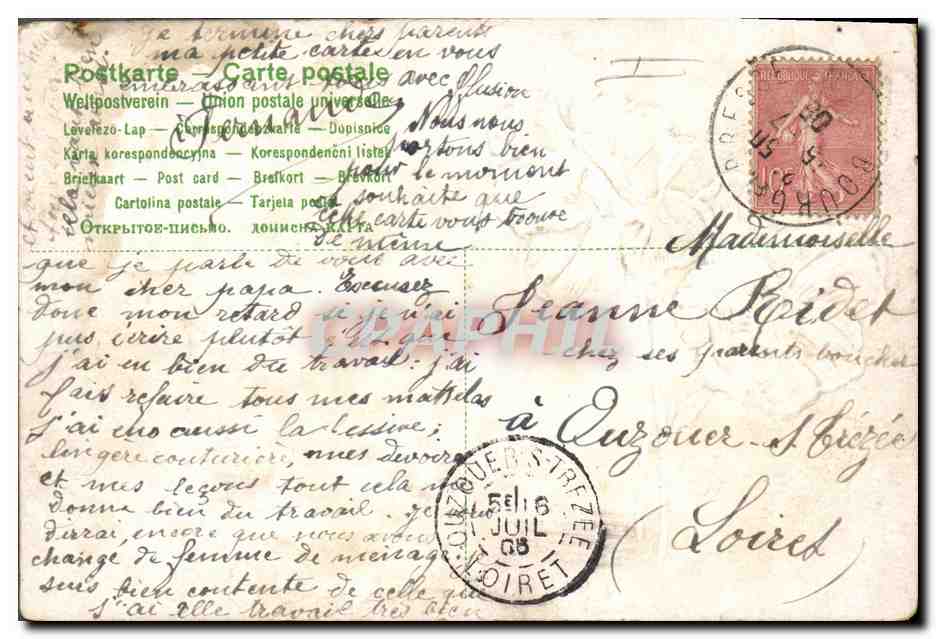 Je termine chers parents
ma petite carte en vous
embrassant tous avec effusion
Fernande
Nous nous
portons bien
pour le moment
je souhaite que
cette carte vous trouve
de même
Postkarte — Carte postale
Weltpostverein — Union postale universelle
Levelezö-Lap — Correspondenzkarte — Dopisnice
Karta korespondencyjna — Korespondenční lístek
Briefkaart — Post card — Brefkort — Brevkort
Cartolina postale — Tarjeta postal
Открытое-письмо. дописна карта
REPUBLIQUE FRANÇAISE
10
BOURG
que je parte de vous avec
mon cher papa. Excusez
donc mon retard si je n'ai
pas écrire plutôt
j'ai eu bien du travail: j'ai
fais refaire tous mes matelas
j'ai eu aussi la lessive;
lingère couturière, mes devoirs
et mes leçons tout cela me
donne bien du travail. je
dirai encore que nous avons
change de femme de ménage
suis bien contente de celle que
j'ai elle travail très bien
Mademoiselle
Jeanne Ridet
chez ses parents boucher
à Ouzouer s/ Trézée
(Loiret)
OUZOUER-S-TREZEE
5E 16
JUIL
05
LOIRET
CPAPHIL